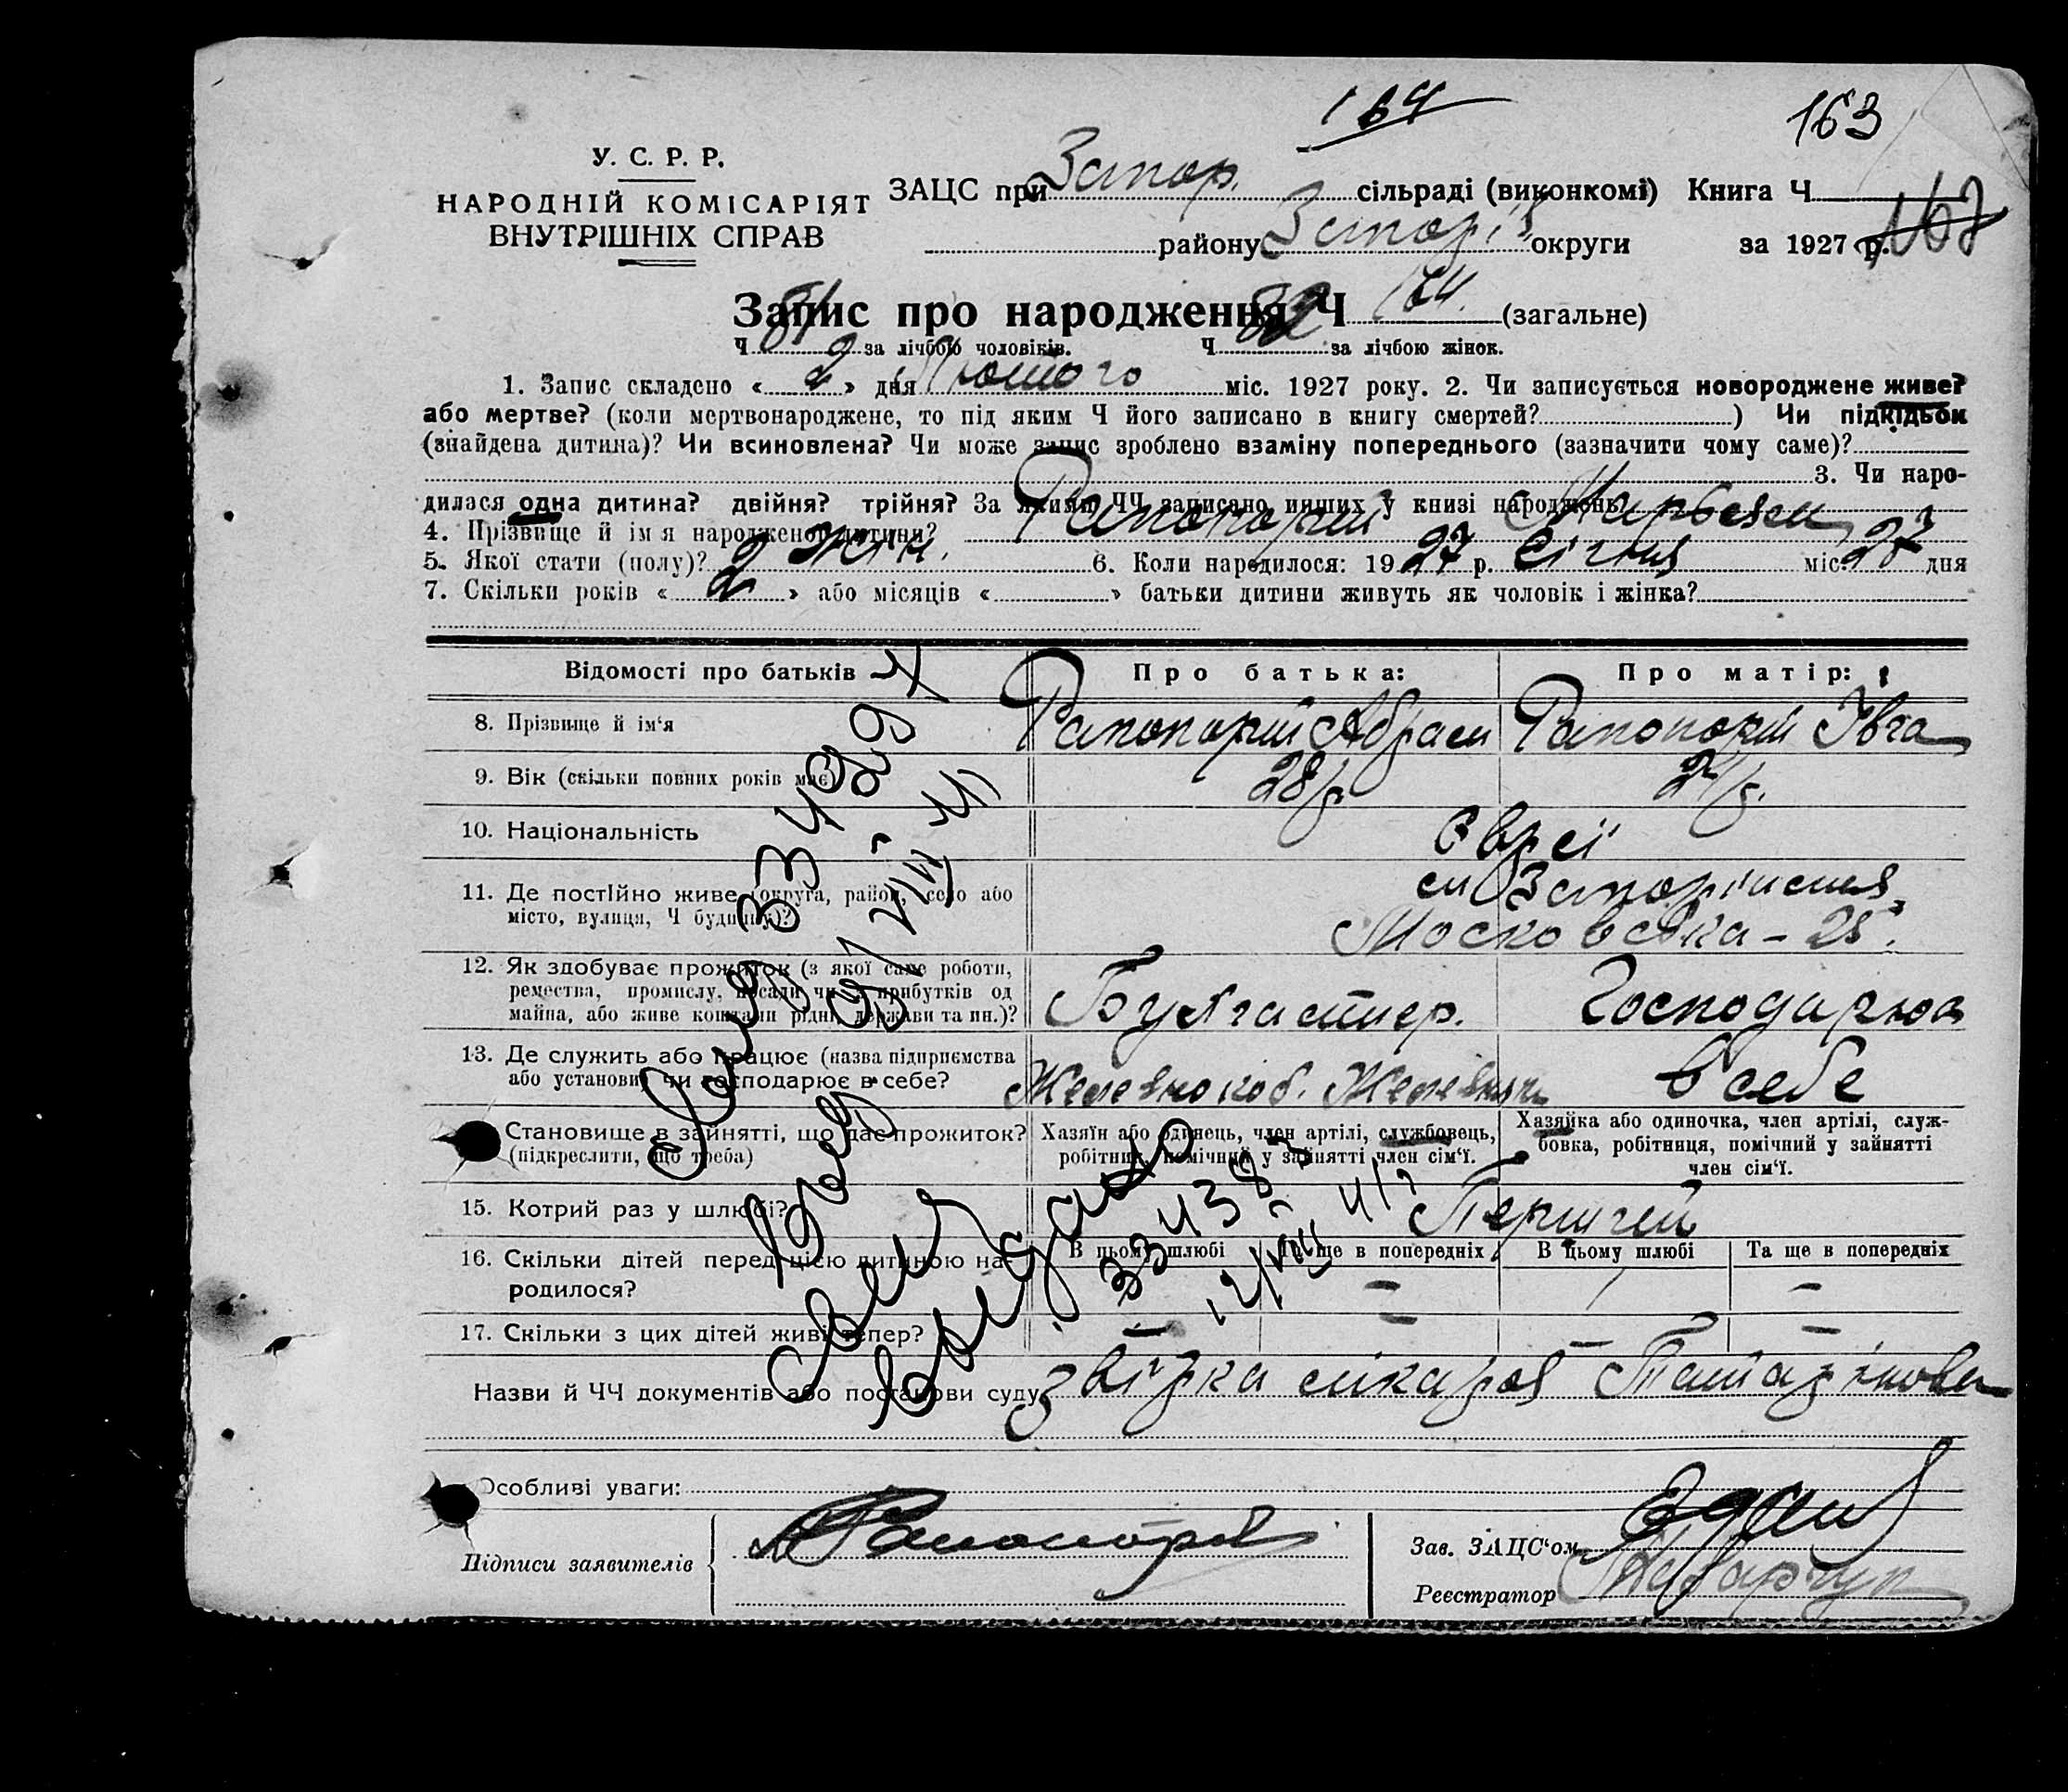 164
163
У. С. Р. Р.
НАРОДНІЙ КОМІСАРІЯТ
ВНУТРІШНІХ СПРАВ
ЗАЦС при Запор. сільраді (виконкомі) Книга Ч
району Запоріз округи за 1927 р. 167
Запис про народження Ч 164. (загальне)
Ч 81 за лічбою чоловіків. Ч 82 за лічбою жінок.
1. Запис складено « 2 » дня Лютого міс. 1927 року. 2. Чи записується новороджене живе?
або мертве? (коли мертвонароджене, то під яким Ч його записано в книгу смертей? ) Чи підкідьок
(знайдена дитина)? Чи всиновлена? Чи може запис зроблено взаміну попереднього (зазначити чому саме)?
3. Чи наро-
дилася одна дитина? двійня? трійня? За якими ЧЧ записано инших у книзі народжень?
4. Прізвище й ім'я народженої дитини? Рапопорт
5. Якої стати (полу)? 2 жін. 6. Коли народилося: 1927 р. Січня міс. 27 дня
7. Скільки років « 2 » або місяців « » батьки дитини живуть як чоловік і жінка?
Відомості про батьків Про батька: Про матір:
8. Прізвище й ім'я Рапопорт Абрам Рапопорт
9. Вік (скільки повних років має) 28 р.
10. Національність Євреї
11. Де постійно живе (округа, район, село або
місто, вулиця, Ч будинку)? м Запоріжжя,
Московська - 25.
12. Як здобуває прожиток (з якої саме роботи,
ремества, промислу, посади чи з прибутків од
майна, або живе коштами рідні, держави та ин.)? Бухгалтер. Господарює
13. Де служить або працює (назва підприємства
або установи) чи господарює в себе? в себе
Становище в зайнятті, що дає прожиток?
(підкреслити, що треба)
Хазяїн або одинець, член артілі, службовець,
робітник, помічний у зайнятті член сім'ї.
Хазяйка або одиночка, член артілі, служ-
бовка, робітниця, помічний у зайнятті
член сім'ї.
15. Котрий раз у шлюбі? Перший
16. Скільки дітей перед цією дитиною на-
родилося?
В цьому шлюбі Та ще в попередніх В цьому шлюбі Та ще в попередніх
17. Скільки з цих дітей живі тепер?
Назви й ЧЧ документів або постанови суду звірка лікаря
Особливі уваги:
Підписи заявителів Рапопорт
Зав. ЗАЦС'ом
Реєстратор